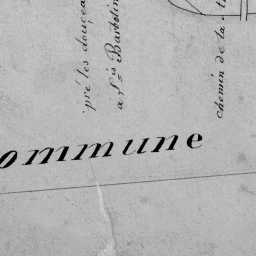 pré les douce
à L.s Barbelin
chemin de la
ommune